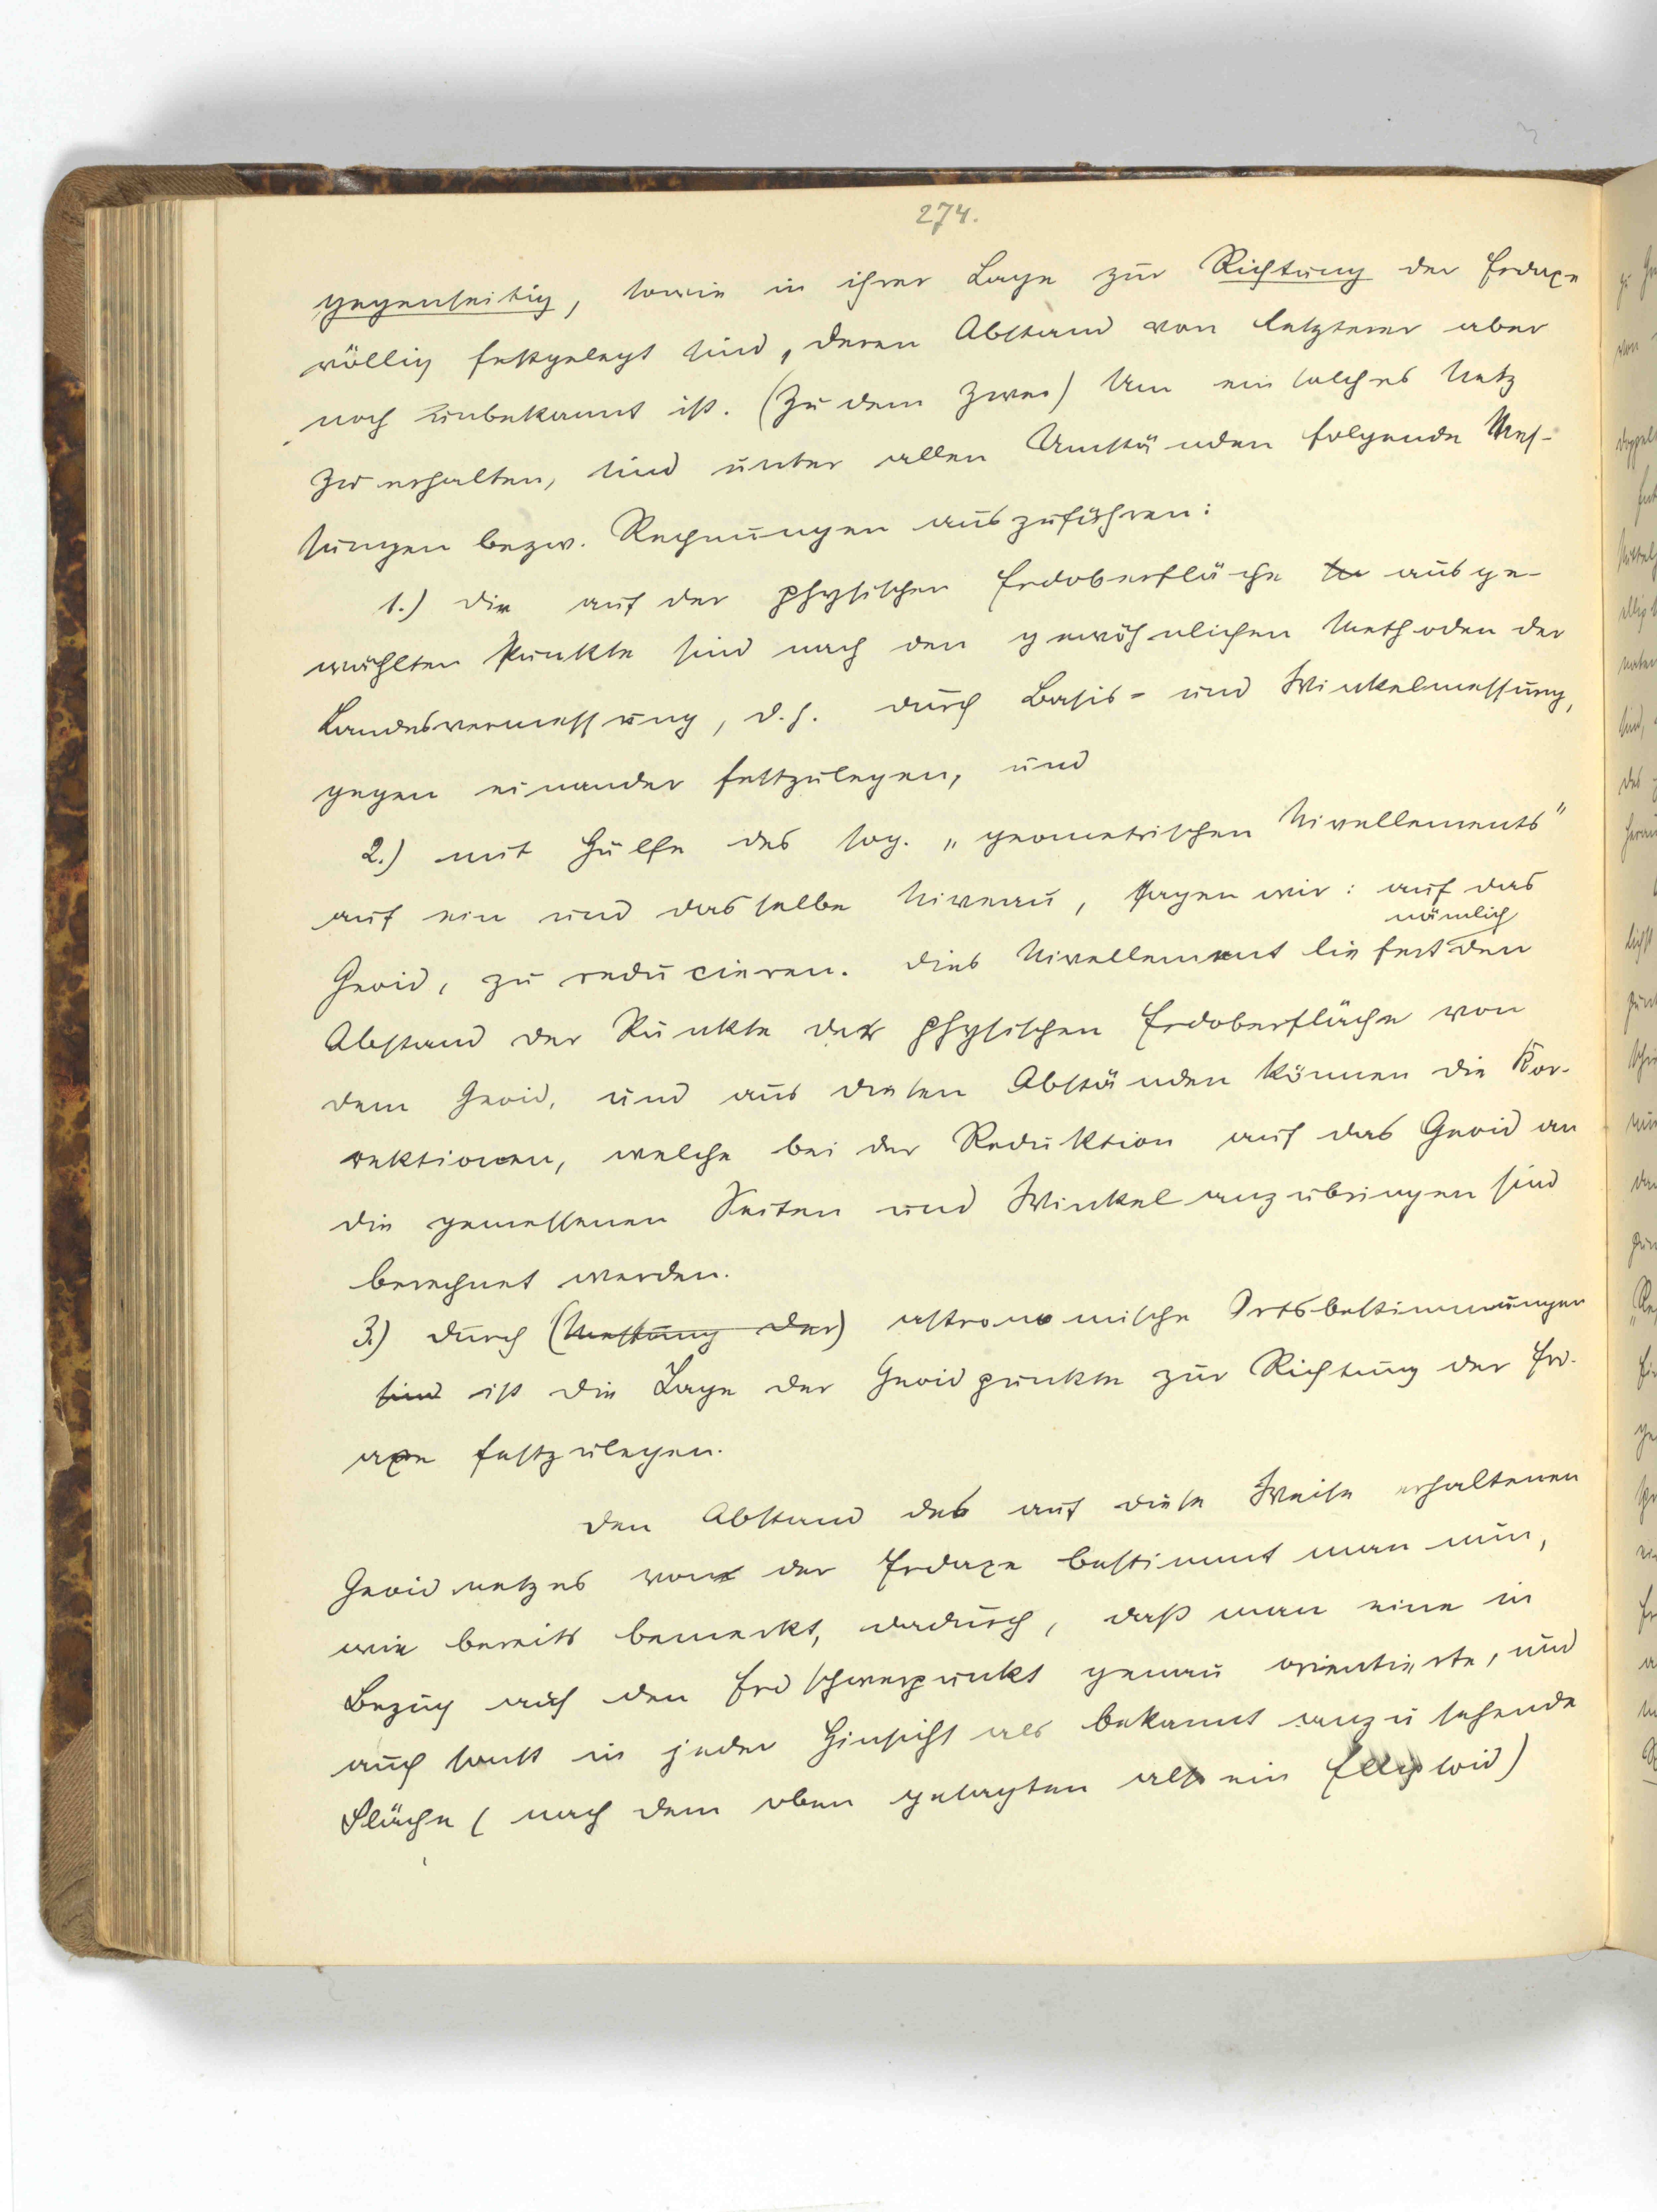 274.
gegenseitig, sowie in ihrer Lage zur Richtung der Erdaxe
völlig festgelegt sind, deren Abstand von letzterer aber
noch unbekannt ist. (Zu dem Zwec) Um ein solches Netz
zu erhalten, sind unter allen Umständen folgende Mes-
sungen bezw. Rechnungen auszuführen:
1.) die auf der physischen Erdoberfläche ausge-
wählten Punkte sind nach den gewöhnlichen Methoden der
Landesvermessung, d. h. durch Basis- und Winkelmessung,
gegen einander festzulegen, und
2.) mit Hülfe des sog. „geometrischen Nivellements"
auf ein und dasselbe Niveau, sagen wir: auf das
nämlich
Geoid, zu reducieren. Dies Nivellement liefert den
Abstand der Punkte der physischen Erdoberfläche von
dem Geoid, und aus diesen Abständen können die Kor-
rektionen, welche bei der Reduktion auf das Geoid an
die gemessenen Seiten und Winkel anzubringen sind
berechnet werden.
3.) durch (Messung der) astronomische Ortsbestimmungen
sind ist die Lage der Geoidpunkte zur Richtung der Erd-
axe festzulegen.
Den Abstand des auf diese Weise erhaltenen
Geoidnetzes von der Erdaxe bestimmt man nun,
wie bereits bemerkt, dadurch, daß man eine in
Bezug auf den Erdschwerpunkt genau orientierte, und
auch sonst in jeder Hinsicht als bekannt anzusehende
Fläche (nach dem oben gesagten also ein Ellipsoid)